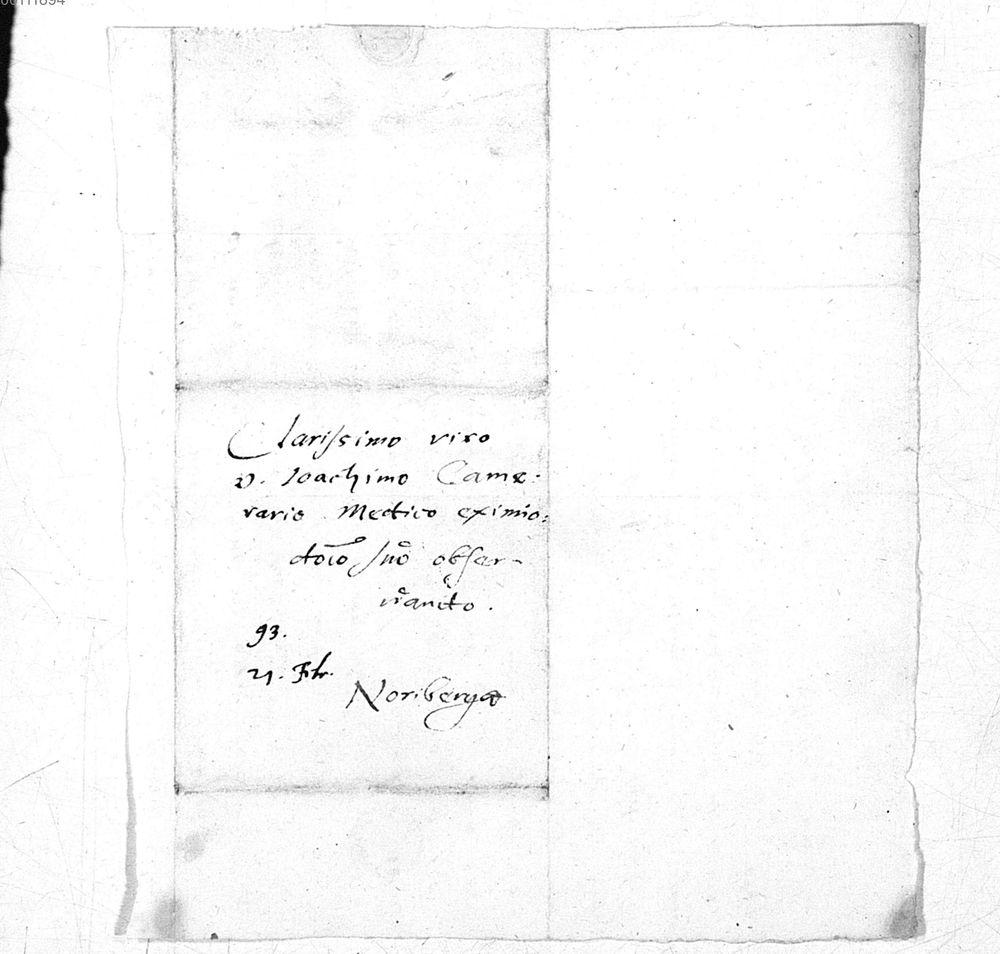 Clarissimo viro
D. Ioachimo Came-
rario Medico eximio:
dno suo obser-
vando.
93.
21. Febr.
Noribergæ